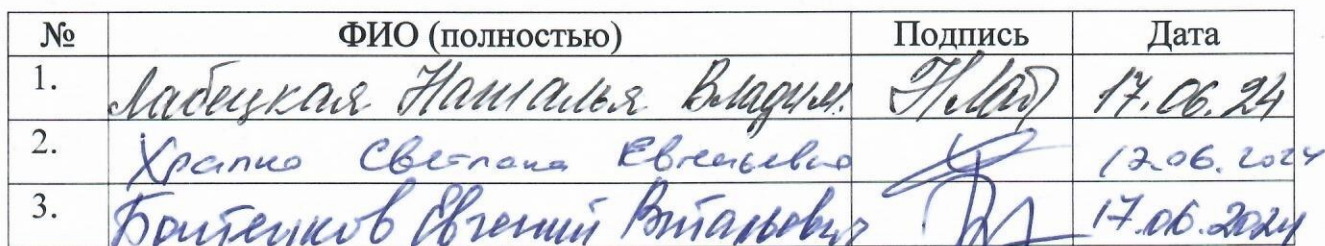 № ФИО (полностью) Подпись Дата
1. Лабецкая Наталья Владим. НЛаб 17.06.24
2. Светлана Евгеньевна 17.06.2024
3. Евгений Витальевич 17.06.2024